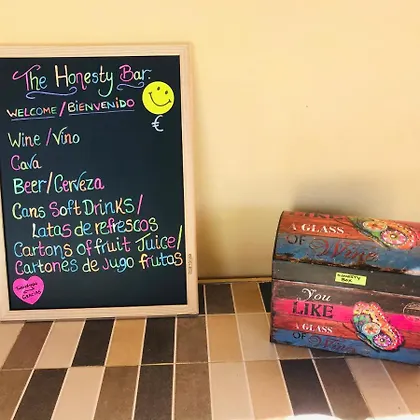 The Honesty Bar.
WELCOME / BIENVENIDO
€
Wine / Vino
Cava
Beer / Cerveza
Cans Soft Drinks /
Latas de refrescos
Cartons of fruit Juice /
Cartones de Jugo frutas
GRACIAS
A GLASS
OF Wine
HONESTY
BOX
You
LIKE
A GLASS
OF Wine